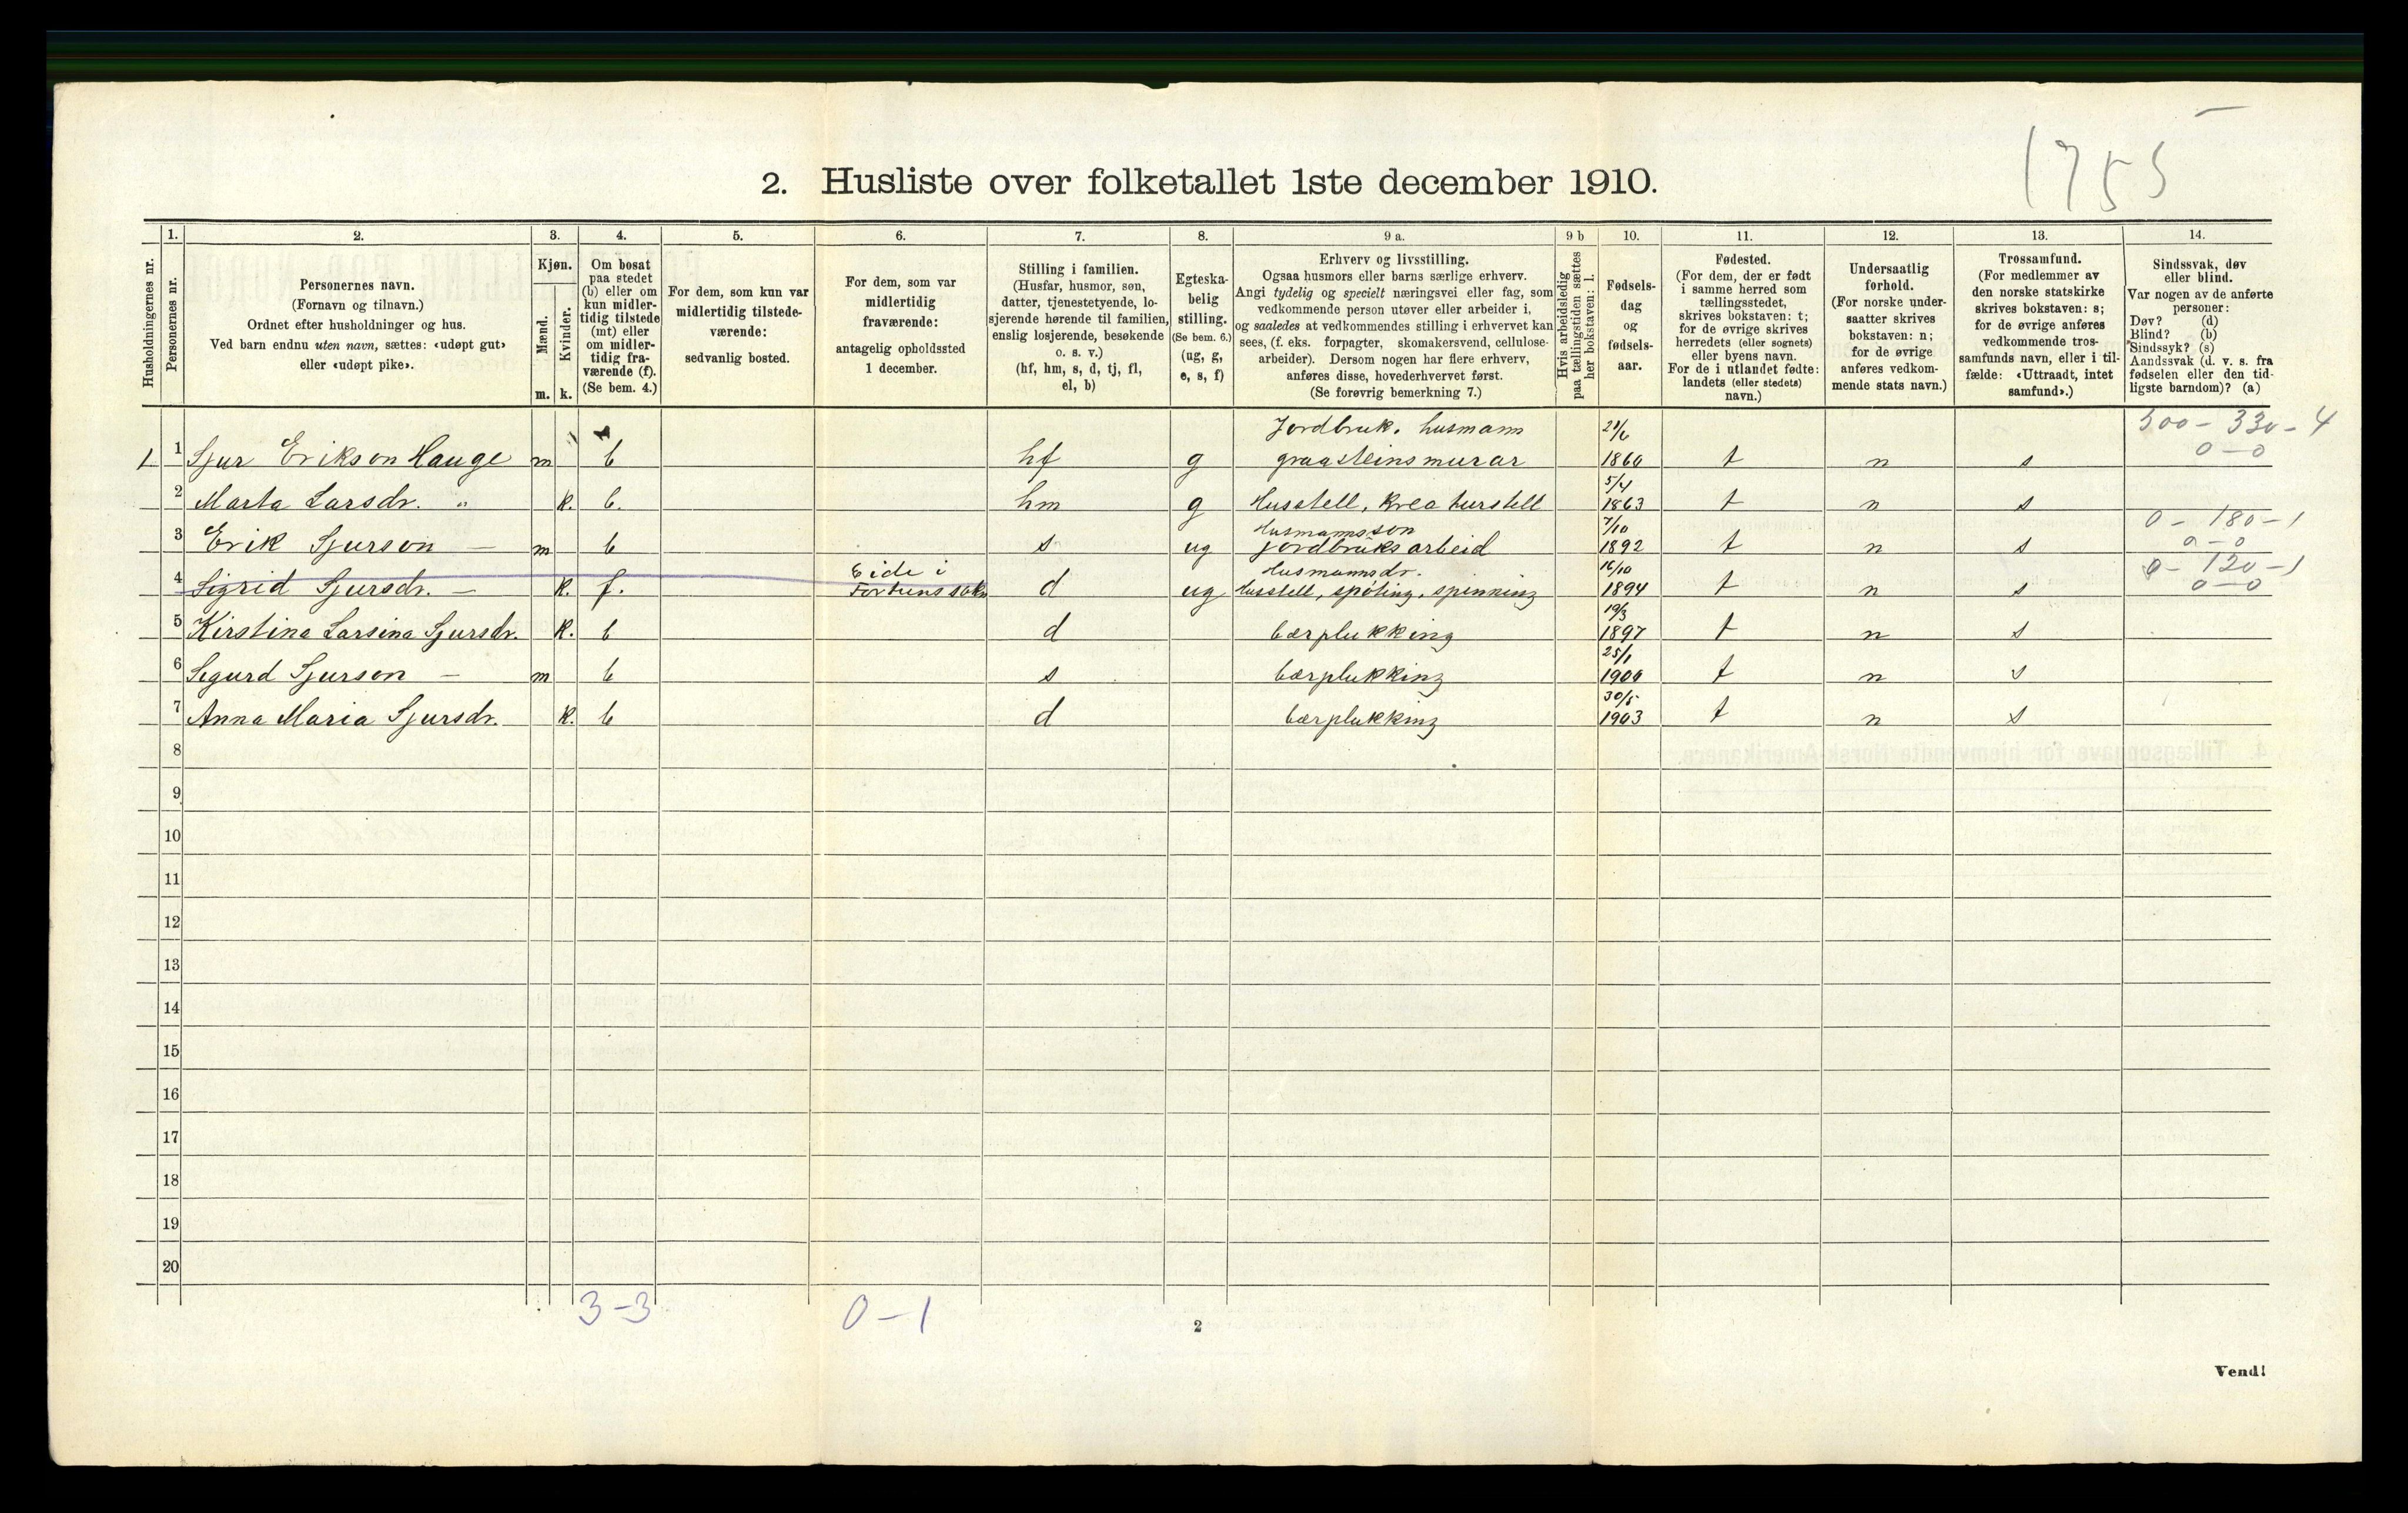 1755
2. Husliste over folketallet 1ste december 1910.
Husholdningernes nr.
1.
Personernes nr.
2.
Personernes navn.
(Fornavn og tilnavn.)
Ordnet efter husholdninger og hus.
Ved barn endnu uten navn, sættes: «udøpt gut»
eller «udøpt pike».
3.
Kjøn.
Mænd.
Kvinder.
m. k.
4.
Om bosat
paa stedet
(b) eller om
kun midler-
tidig tilstede
(mt) eller
om midler-
tidig fra-
værende (f).
(Se bem. 4.)
5.
For dem, som kun var
midlertidig tilstede-
værende:
sedvanlig bosted.
6.
For dem, som var
midlertidig
fraværende:
antagelig opholdssted
1 december.
7.
Stilling i familien.
(Husfar, husmor, søn,
datter, tjenestetyende, lo-
sjerende hørende til familien,
enslig losjerende, besøkende
o. s. v.)
(hf, hm, s, d, tj, fl,
el, b)
8.
Egteska-
belig
stilling.
(Se bem. 6.)
(ug, g,
e, s, f)
9 a.
Erhverv og livsstilling.
Ogsaa husmors eller barns særlige erhverv.
Angi tydelig og specielt næringsvei eller fag, som
vedkommende person utøver eller arbeider i,
og saaledes at vedkommendes stilling i erhvervet kan
sees, (f. eks. forpagter, skomakersvend, cellulose-
arbeider). Dersom nogen har flere erhverv,
anføres disse, hovederhvervet først.
(Se forøvrig bemerkning 7.)
9 b
Hvis arbeidsledig
paa tællingstiden sættes
her bokstaven: l.
10.
Fødsels-
dag
og
fødsels-
aar.
11.
Fødested.
(For dem, der er født
i samme herred som
tællingsstedet,
skrives bokstaven: t;
for de øvrige skrives
herredets (eller sognets)
eller byens navn.
For de i utlandet fødte:
landets (eller stedets)
navn.)
12.
Undersaatlig
forhold.
(For norske under-
saatter skrives
bokstaven: n;
for de øvrige
anføres vedkom-
mende stats navn.)
13.
Trossamfund.
(For medlemmer av
den norske statskirke
skrives bokstaven: s;
for de øvrige anføres
vedkommende tros-
samfunds navn, eller i til-
fælde: «Uttraadt, intet
samfund».)
14.
Sindssvak, døv
eller blind.
Var nogen av de anførte
personer:
Døv? (d)
Blind? (b)
Sindssyk? (s)
Aandssvak (d. v. s. fra
fødselen eller den tid-
ligste barndom)? (a)
Jordbruk. husmann 21/6 300 - 330 - 4
1 1 Sjur Erikson Hauge m b hf g graasteinsmurar 1860 t n s 0 - 0
5/4
2 Marta Larsdr. " k. b. hm g Husstell, kreaturstell 1863 t n s
Husmannsson 7/10 0 - 180 - 1
3 Erik Sjurson — m b s ug jordbruksarbeid 1892 t n s 0 - 0
Eide i Husmannsdr. 16/10 0 - 120 - 1
4 Sigrid Sjursdr. — k. f. Fortuns sokn d ug Husstell, spøting, spinning 1894 t n s 0 - 0
19/3
5 Kirstina Larsina Sjursdr. k. b d bærplukking 1897 t n s
25/1
6 Sigurd Sjurson — m b s bærplukking 1900 t n s
30/5
7 Anna Maria Sjursdr. k. b d bærplukking 1903 t n s
8
9
10
11
12
13
14
15
16
17
18
19
20
3 - 3 0 - 1
2
Vend!